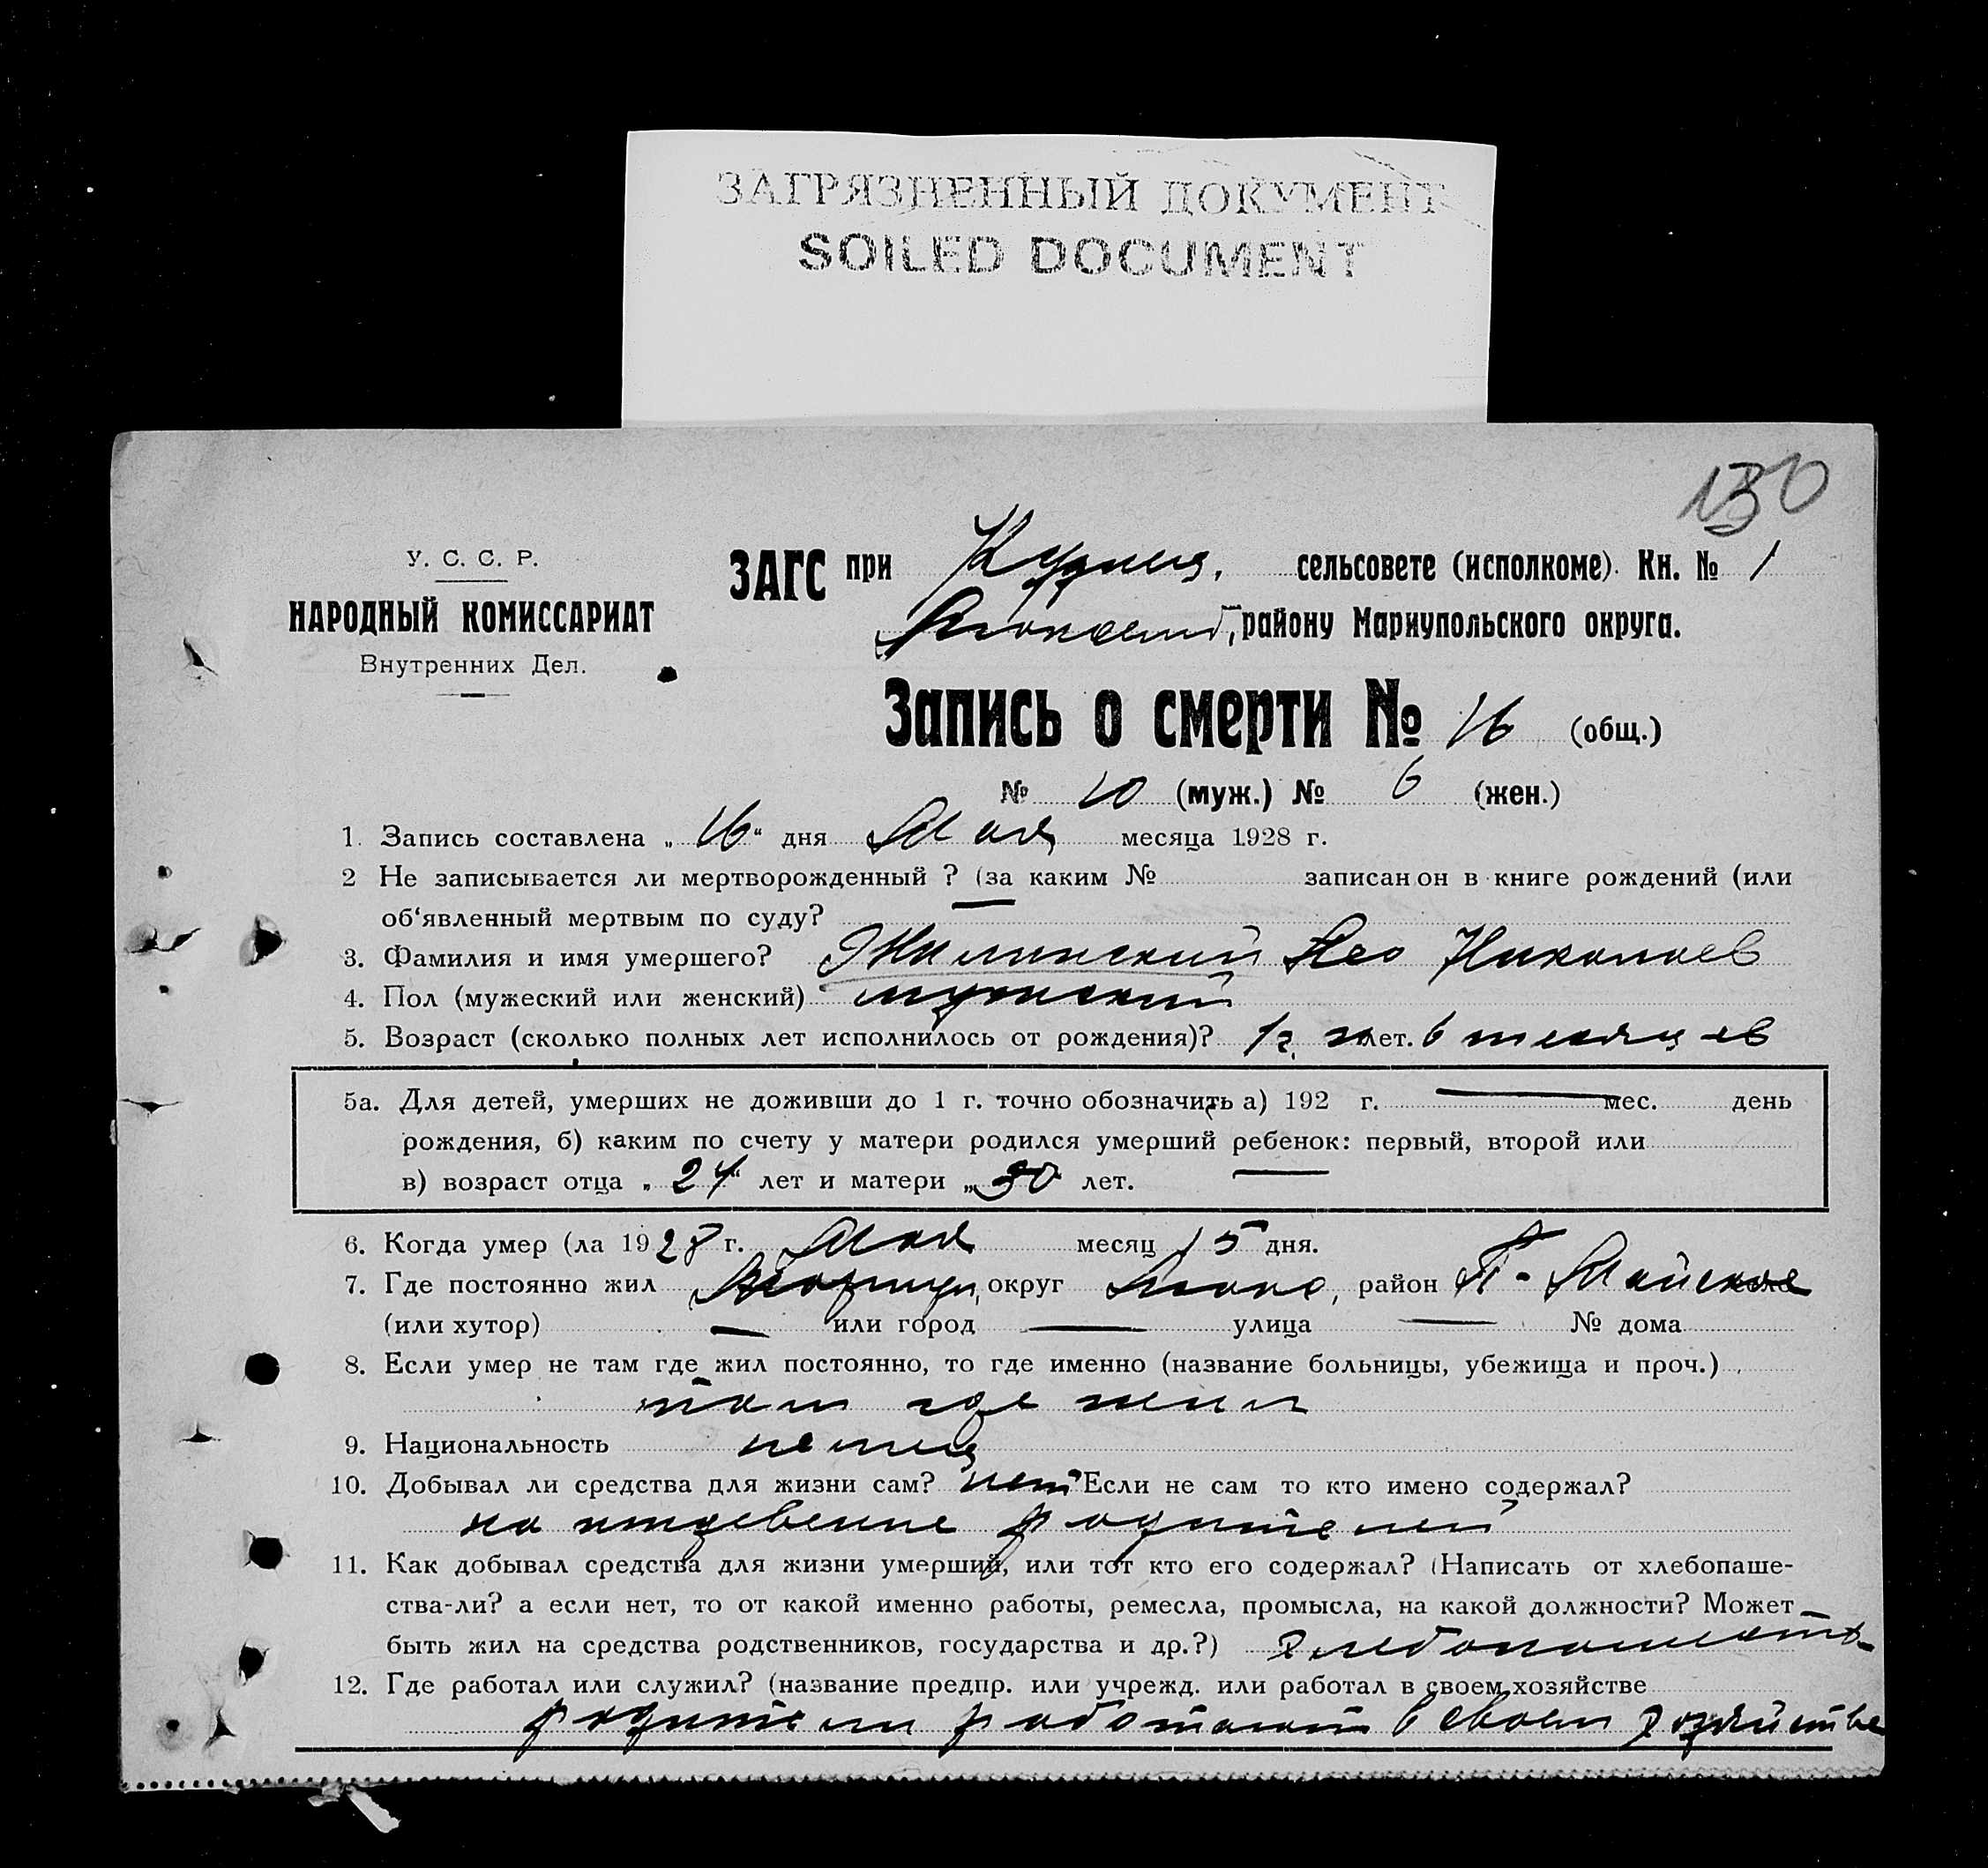 ЗАГРЯЗНЕННЫЙ ДОКУМЕНТ
SOILED DOCUMENT
130
У. С. С. Р.
НАРОДНЫЙ КОМИССАРИАТ
Внутренних Дел.
ЗАГС при сельсовете (исполкоме). Кн. № 1
району Мариупольского округа.
Запись о смерти № 16 (общ.)
№ 10 (муж.) № 6 (жен.)
1. Запись составлена „ 16 “ дня Мая месяца 1928 г.
2 Не записывается ли мертворожденный ? (за каким № записан он в книге рождений (или
об‘явленный мертвым по суду? —
3. Фамилия и имя умершего? Жилинский Лео Николаев
4. Пол (мужеский или женский) мужский
5. Возраст (сколько полных лет исполнилось от рождения)? 1 г. лет. 6 месяцев
5а. Для детей, умерших не доживши до 1 г. точно обозначить а) 192 г. — мес. день
рождения, б) каким по счету у матери родился умерший ребенок: первый, второй или
в) возраст отца „ 24 “ лет и матери „ 30 лет. —
6. Когда умер (ла 1928 г. Мая месяц 15 дня.
7. Где постоянно жил округ район Майское
(или хутор) — или город — улица — № дома
8. Если умер не там где жил постоянно, то где именно (название больницы, убежища и проч.)
там где жил
9. Национальность немец
10. Добывал ли средства для жизни сам? нет Если не сам то кто имено содержал?
на иждевение родителей
11. Как добывал средства для жизни умерший, или тот кто его содержал? (Написать от хлебопаше-
ства-ли? а если нет, то от какой именно работы, ремесла, промысла, на какой должности? Может
быть жил на средства родственников, государства и др.?)
12. Где работал или служил? (название предпр. или учрежд. или работал в своем хозяйстве
родители работают в своем хозяйстве